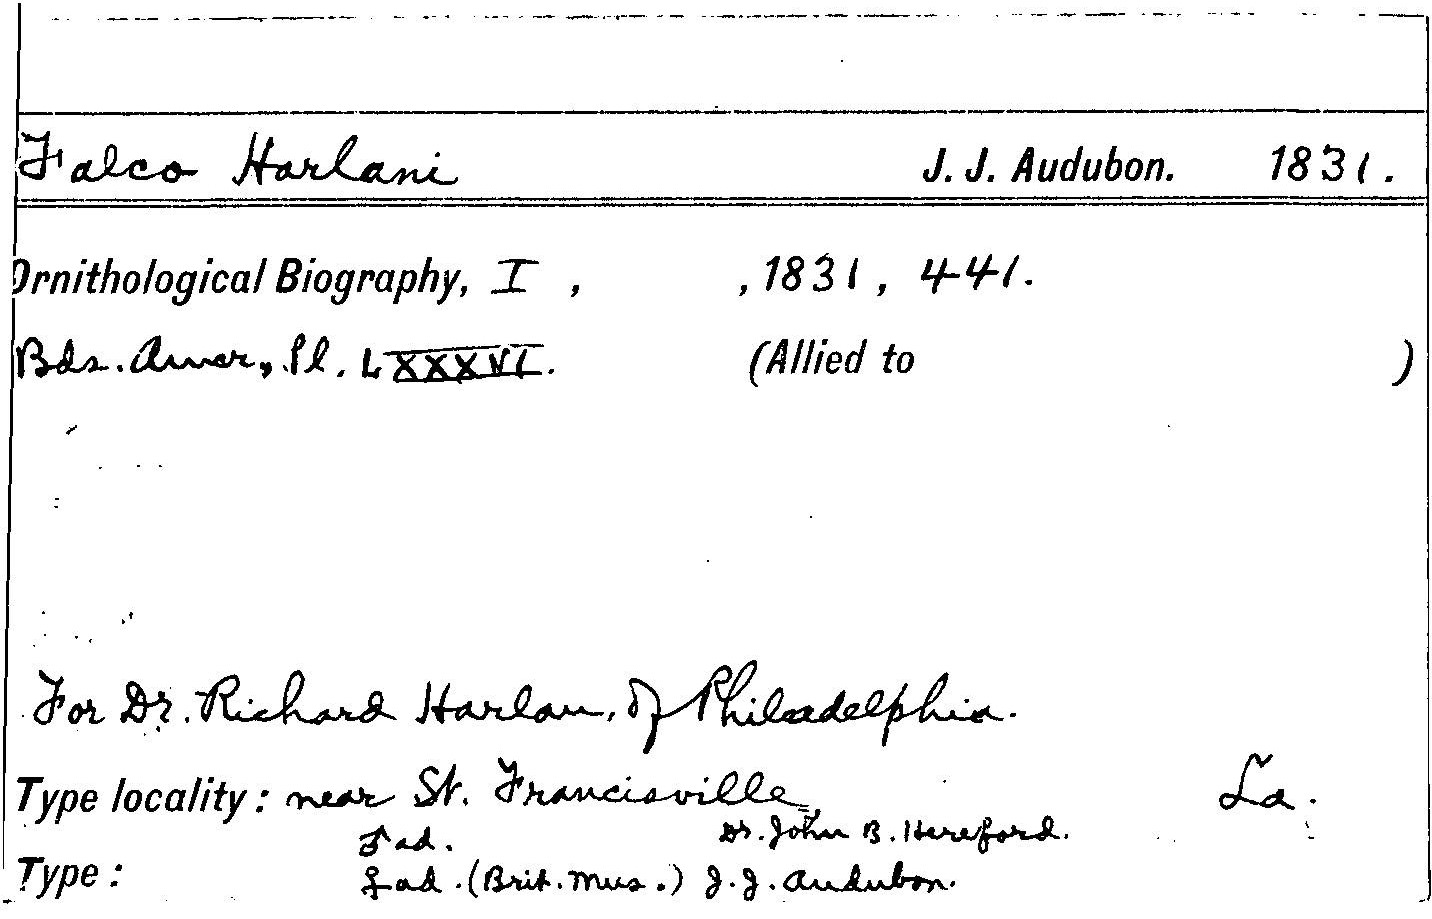 Falco Harlani J. J. Audubon. 1831.
Ornithological Biography, I , , 1831, 441.
Bds. Amer., Pl. LXXXVI. (Allied to )
For Dr. Richard Harlan, of Philadelphia.
Type locality: near St. Francisville, La.
♂ ad. Dr. John B. Hereford.
Type: ♀ ad. (Brit. Mus.) J. J. Audubon.